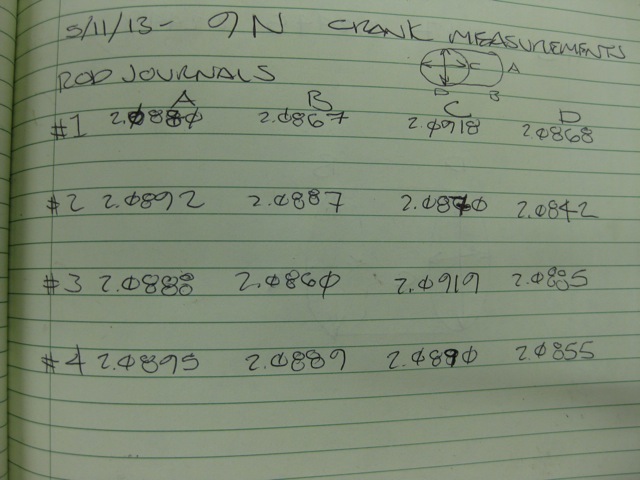 5/11/13 - 9N CRANK MEASUREMENTS
ROD JOURNALS
C A
D B
A B C D
#1 2.0880 2.0867 2.0918 2.0868
#2 2.0892 2.0887 2.0870 2.0842
#3 2.0888 2.0860 2.0919 2.0885
#4 2.0895 2.0889 2.0890 2.0855